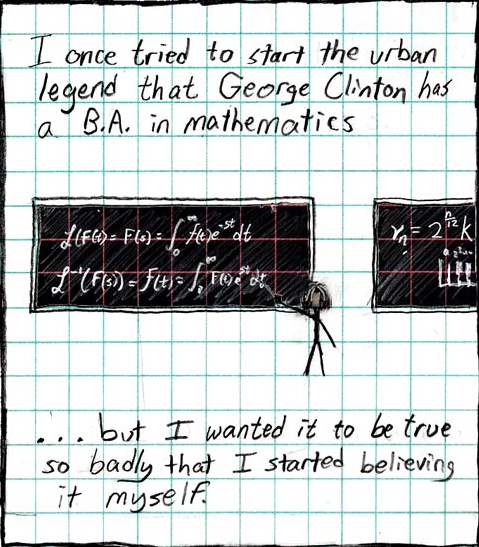 I once tried to start the urban
legend that George Clinton has
a B.A. in mathematics
ℒ(F(t)) = F(s) = ∫₀^∞ f(t)e^{-st} dt
ℒ⁻¹(F(s)) = f(t) =
r_n = 2^{n/12} k
.... but I wanted it to be true
so badly that I started believing
it myself.